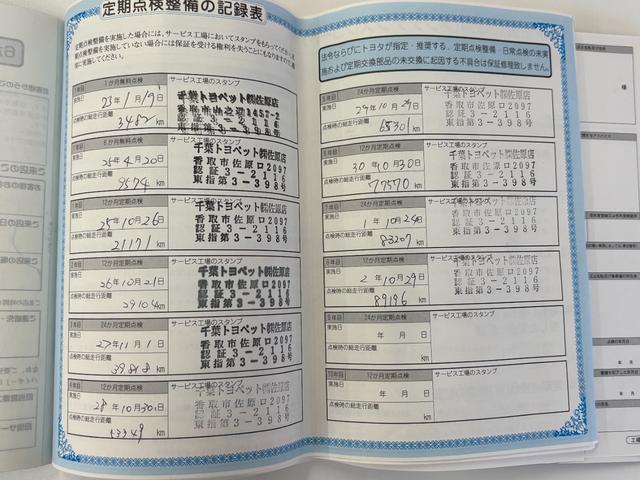 定期点検整備の記録表
定期点検整備を実施した場合には、サービス工場においてスタンプをもらってください。
点検整備を実施していない場合には保証を受ける権利を失うこともありますので
に実施してください。
1か月無料点検
サービス工場のスタンプ
実施日
23年1月19日
点検時の総走行距離
3482 km
千葉トヨペット㈱佐原店
認証3-2116
東指第3-398号
6か月無料点検
サービス工場のスタンプ
実施日
25年4月20日
点検時の総走行距離
9574 km
千葉トヨペット㈱佐原店
香取市佐原ロ2097
認証3-2116
東指第3-398号
12か月定期点検
サービス工場のスタンプ
実施日
25年10月26日
点検時の総走行距離
21171 km
千葉トヨペット㈱佐原店
香取市佐原ロ2097
認証3-2116
東指第3-398号
2年目
12か月定期点検
サービス工場のスタンプ
実施日
26年10月21日
点検時の総走行距離
29104 km
千葉トヨペット㈱佐原店
香取市佐原ロ2097
認証3-2116
東指第3-398号
3年目
24か月定期点検
サービス工場のスタンプ
実施日
27年11月1日
点検時の総走行距離
39818 km
千葉トヨペット㈱佐原店
香取市佐原ロ2097
認証3-2116
東指第3-398号
12か月定期点検
サービス工場のスタンプ
実施日
28年10月30日
点検時の総走行距離
53349 km
千葉トヨペット㈱佐原店
香取市佐原ロ2097
認証3-2116
東指第3-398号
法令ならびにトヨタが指定・推奨する、定期点検整備・日常点検の未実
施および定期交換部品の未交換に起因する不具合は保証修理致しません。
5年目
24か月定期点検
サービス工場のスタンプ
実施日
29年10月29日
点検時の総走行距離
65301 km
千葉トヨペット㈱佐原店
香取市佐原ロ2097
認証3-2116
東指第3-398号
12か月定期点検
サービス工場のスタンプ
実施日
30年10月30日
点検時の総走行距離
77570 km
千葉トヨペット㈱佐原店
香取市佐原ロ2097
認証3-2116
東指第3-398号
24か月定期点検
サービス工場のスタンプ
実施日
1年10月24日
点検時の総走行距離
83207 km
千葉トヨペット㈱佐原店
香取市佐原ロ2097
認証3-2116
東指第3-398号
8年目
12か月定期点検
サービス工場のスタンプ
実施日
2年10月29日
点検時の総走行距離
89196 km
千葉トヨペット㈱佐原店
香取市佐原ロ2097
認証3-2116
東指第3-398号
9年目
24か月定期点検
サービス工場のスタンプ
実施日
年 月 日
点検時の総走行距離
km
10年目
12か月定期点検
サービス工場のスタンプ
実施日
年 月 日
点検時の総走行距離
km
様